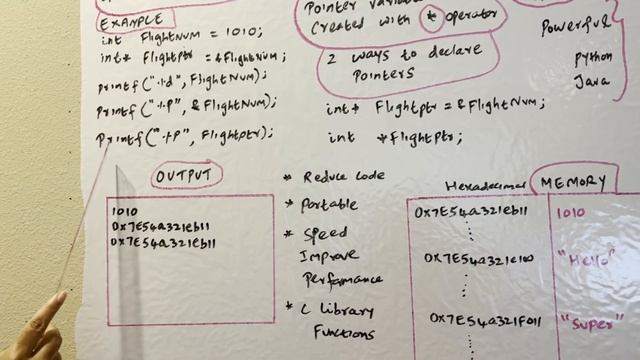 EXAMPLE
int FlightNum = 1010;
int* FlightPtr = &FlightNum;
printf("%d", FlightNum);
printf("%P", &FlightNum);
printf("%P", FlightPtr);
OUTPUT
1010
0x7E54a321eb11
0x7E54a321eb11
Pointer
Created with * operator
2 ways to declare
Pointers
int* FlightPtr = &FlightNum;
int *FlightPtr;
Powerful
Python
Java
* Reduce code
* Portable
* Speed
Improve
Performance
* C Library
Functions
Hexadecimal MEMORY
0x7E54a321eb11 1010
0x7E54a321e100 "Hello"
0x7E54a321F011 "Super"